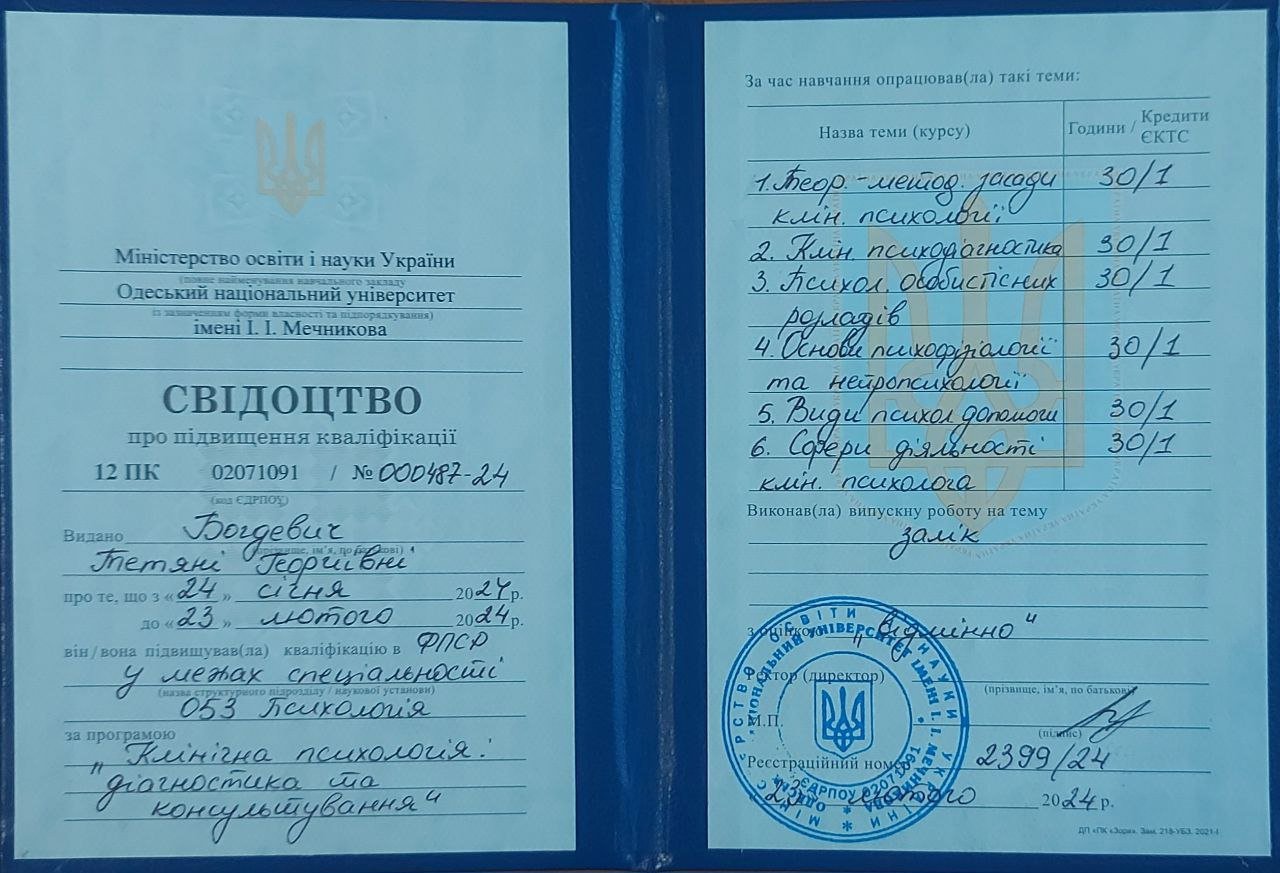 Міністерство освіти і науки України
(повне найменування навчального закладу
Одеський національний університет
із зазначенням форми власності та підпорядкування)
імені І. І. Мечникова
СВІДОЦТВО
про підвищення кваліфікації
12 ПК 02071091 / № 000487-24
(код ЄДРПОУ)
Видано Богдевич
(прізвище, ім’я, по батькові)
Тетяні Георгіївні
про те, що з «24» січня 2024 р.
до «23» лютого 2024 р.
він/вона підвищував(ла) кваліфікацію в ФПСР
у межах спеціальності
(назва структурного підрозділу / наукової установи)
053 Психологія
за програмою
„Клінічна психологія:
діагностика та
консультування"
За час навчання опрацював(ла) такі теми:
Назва теми (курсу) Години / Кредити ЄКТС
1. Теор.-метод. засади 30/1
клін. психології
2. Клін. психодіагностика 30/1
3. Психол. особистісних 30/1
розладів
4. Основи психофізіології 30/1
та нейропсихології
5. Види психол допомоги 30/1
6. Сфери діяльності 30/1
клін. психолога
Виконав(ла) випускну роботу на тему
залік
з оцінкою „Відмінно"
Ректор (директор)
(прізвище, ім’я, по батькові)
М.П.
(підпис)
Реєстраційний номер 2399/24
лютого 2024 р.
ДП «ПК «Зоря». Зам. 218-УБЗ. 2021-І